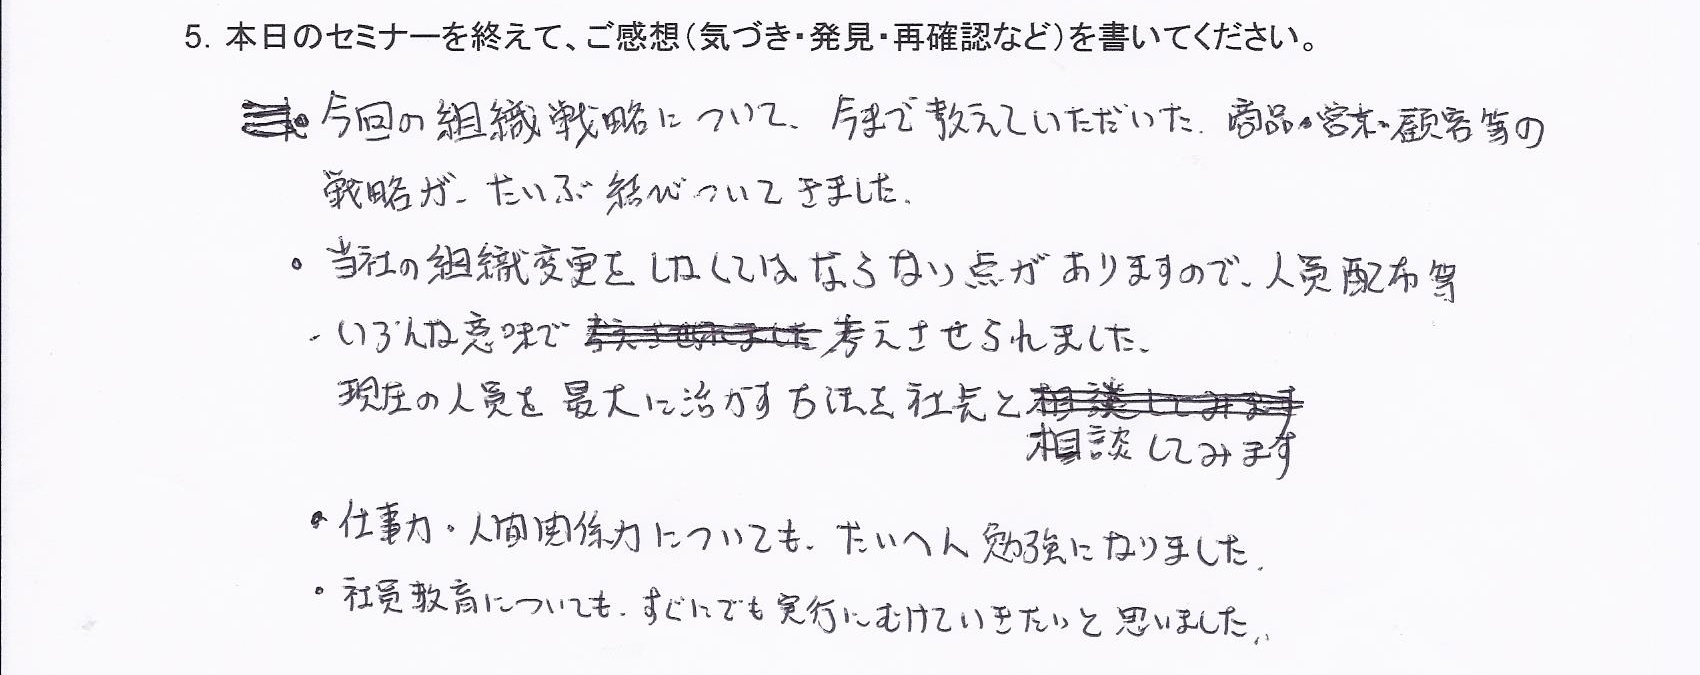 5. 本日のセミナーを終えて、ご感想（気づき・発見・再確認など）を書いてください。
・今回の組織戦略について、今まで教えていただいた、商品・営業・顧客等の
戦略が、だいぶ結びついてきました。
・当社の組織変更をしなくてはならない点がありますので、人員配布等
、いろんな意味で 考えさせられました 考えさせられました、
現在の人員を最大に活かす方法を社長と 相談してみます
相談してみます
・仕事力・人間関係力についても、たいへん勉強になりました。
・社員教育についても、すぐにでも実行にむけていきたいと思いました。